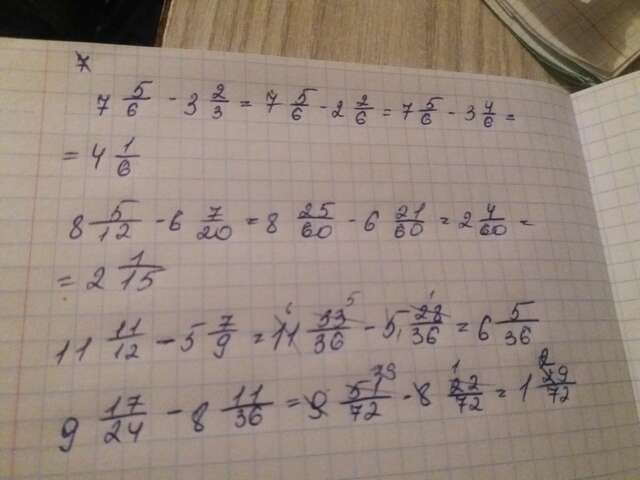 7
7 5/6 - 3 2/3 = 7 5/6 - 2 2/6 = 7 5/6 - 3 4/6 =
= 4 1/6
8 5/12 - 6 7/20 = 8 25/60 - 6 21/60 = 2 4/60 =
= 2 1/15
11 11/12 - 5 7/9 = 11 33/36 - 5 28/36 = 6 5/36
9 17/24 - 8 11/36 = 9 51/72 - 8 22/72 = 1 29/72